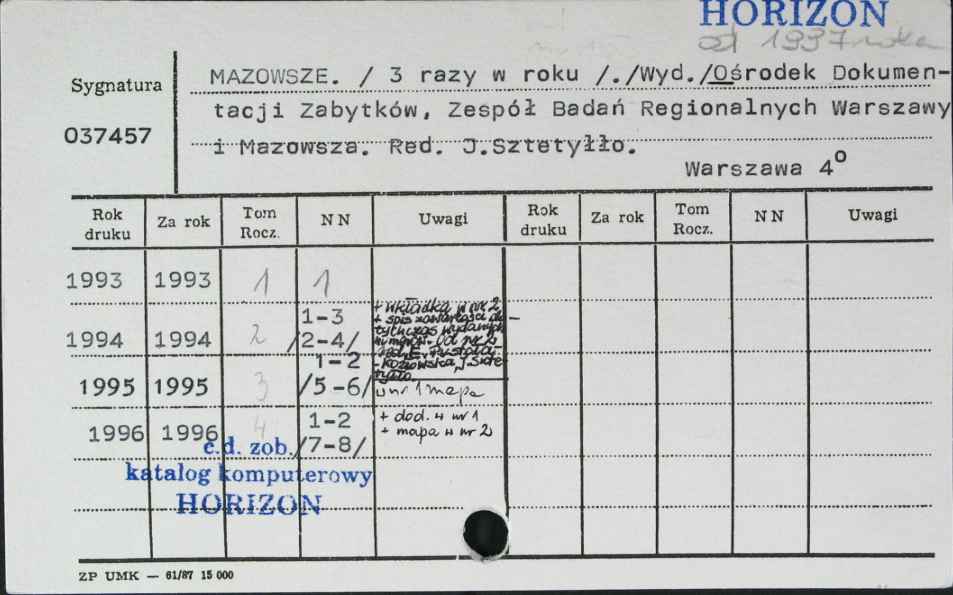 HORIZON
od 1997 roku
Sygnatura
037457
MAZOWSZE. / 3 razy w roku /./Wyd./Ośrodek Dokumen-
tacji Zabytków, Zespół Badań Regionalnych Warszawy
i Mazowsza. Red. J.Sztetyłło.
Warszawa 4º
Rok druku Za rok Tom Rocz. NN Uwagi Rok druku Za rok Tom Rocz. NN Uwagi
1993 1993 1 1
1994 1994 2 1-3 /2-4/
+ wkładka w nr 2
+ spis zawartości do-
tychczas wydanych
numerów. Od nr 2
red. E. Pustoła-
-Kozłowska, J. Szte-
tyłło
1995 1995 3 1-2 /5-6/ w nr 1 mapa
1996 1996 4 1-2 /7-8/
+ dod. w nr 1
+ mapa w nr 2
c.d. zob.
katalog komputerowy
HORIZON
ZP UMK — 61/87 15 000